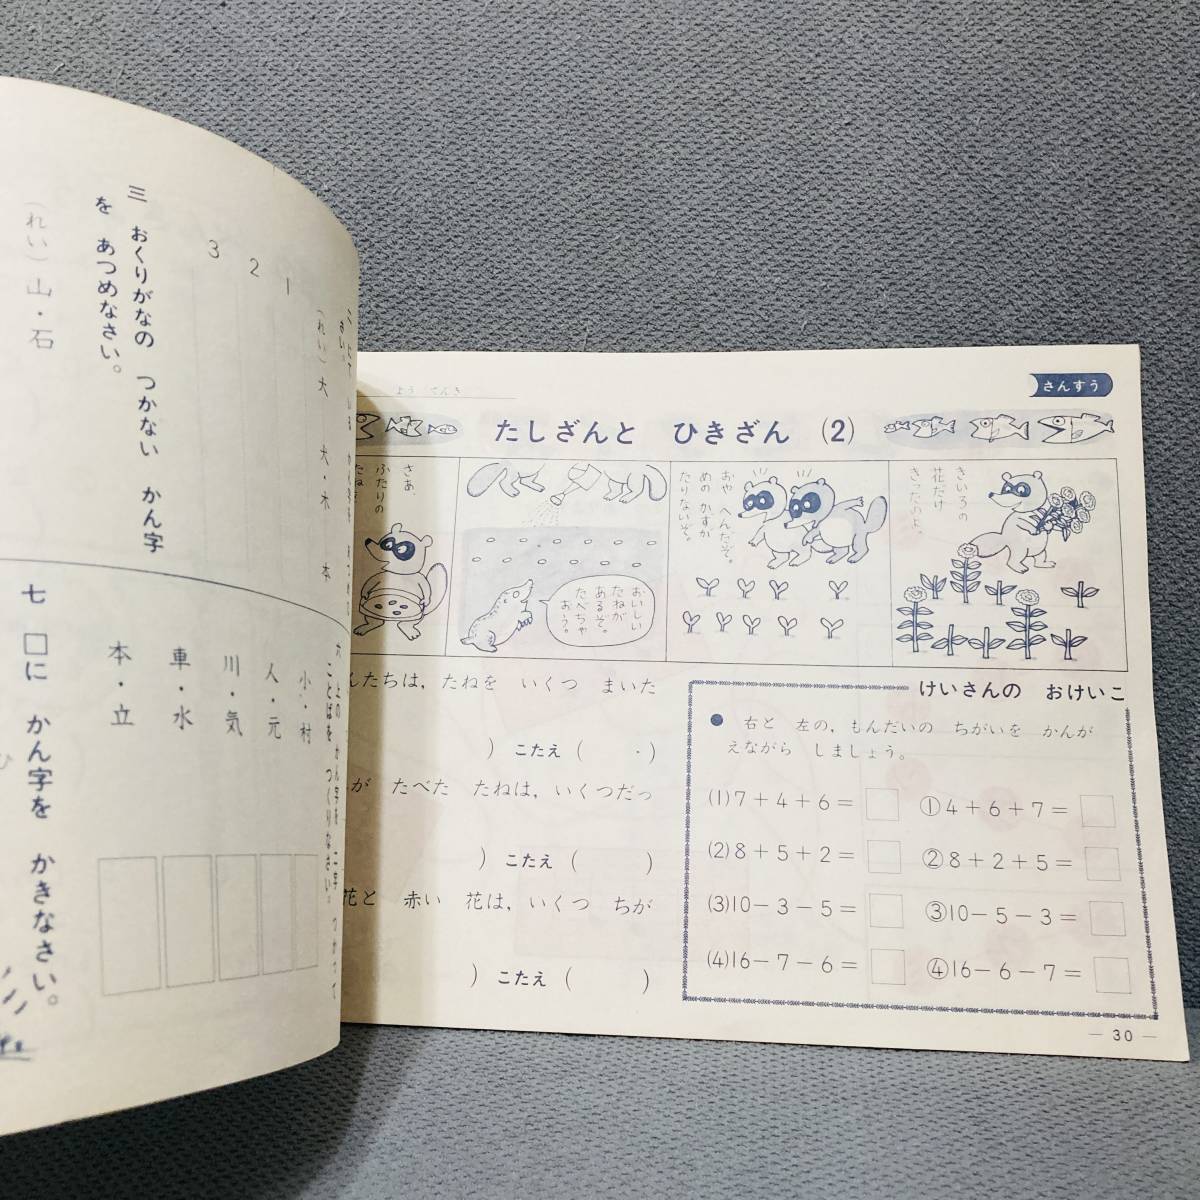 三 おくりがなの つかない かん字
を あつめなさい。
(れい) 山・石
(れい) 大 大・木 本
1
2
3
六 上の かん字を 二字 つかって
ことばを つくりなさい。
小・村
人・元
川・気
車・水
本・立
七 □に かん字を かきなさい。
さんすう
たしざんと ひきざん (2)
さあ、
ふたりの
おいしい
たねが
あるぞ。
たべちゃ
おう。
おや へんだぞ。
めの かずが
たりないぞ。
きいろの
花だけ
さいたのよ。
んたちは，たねを いくつ まいた
) こたえ ( )
が たべた たねは，いくつだっ
) こたえ ( )
花と 赤い 花は，いくつ ちが
) こたえ ( )
けいさんの おけいこ
● 右と 左の，もんだいの ちがいを かんが
えながら しましょう。
(1)7＋4＋6＝□ ①4＋6＋7＝□
(2)8＋5＋2＝□ ②8＋2＋5＝□
(3)10－3－5＝□ ③10－5－3＝□
(4)16－7－6＝□ ④16－6－7＝□
— 30 —